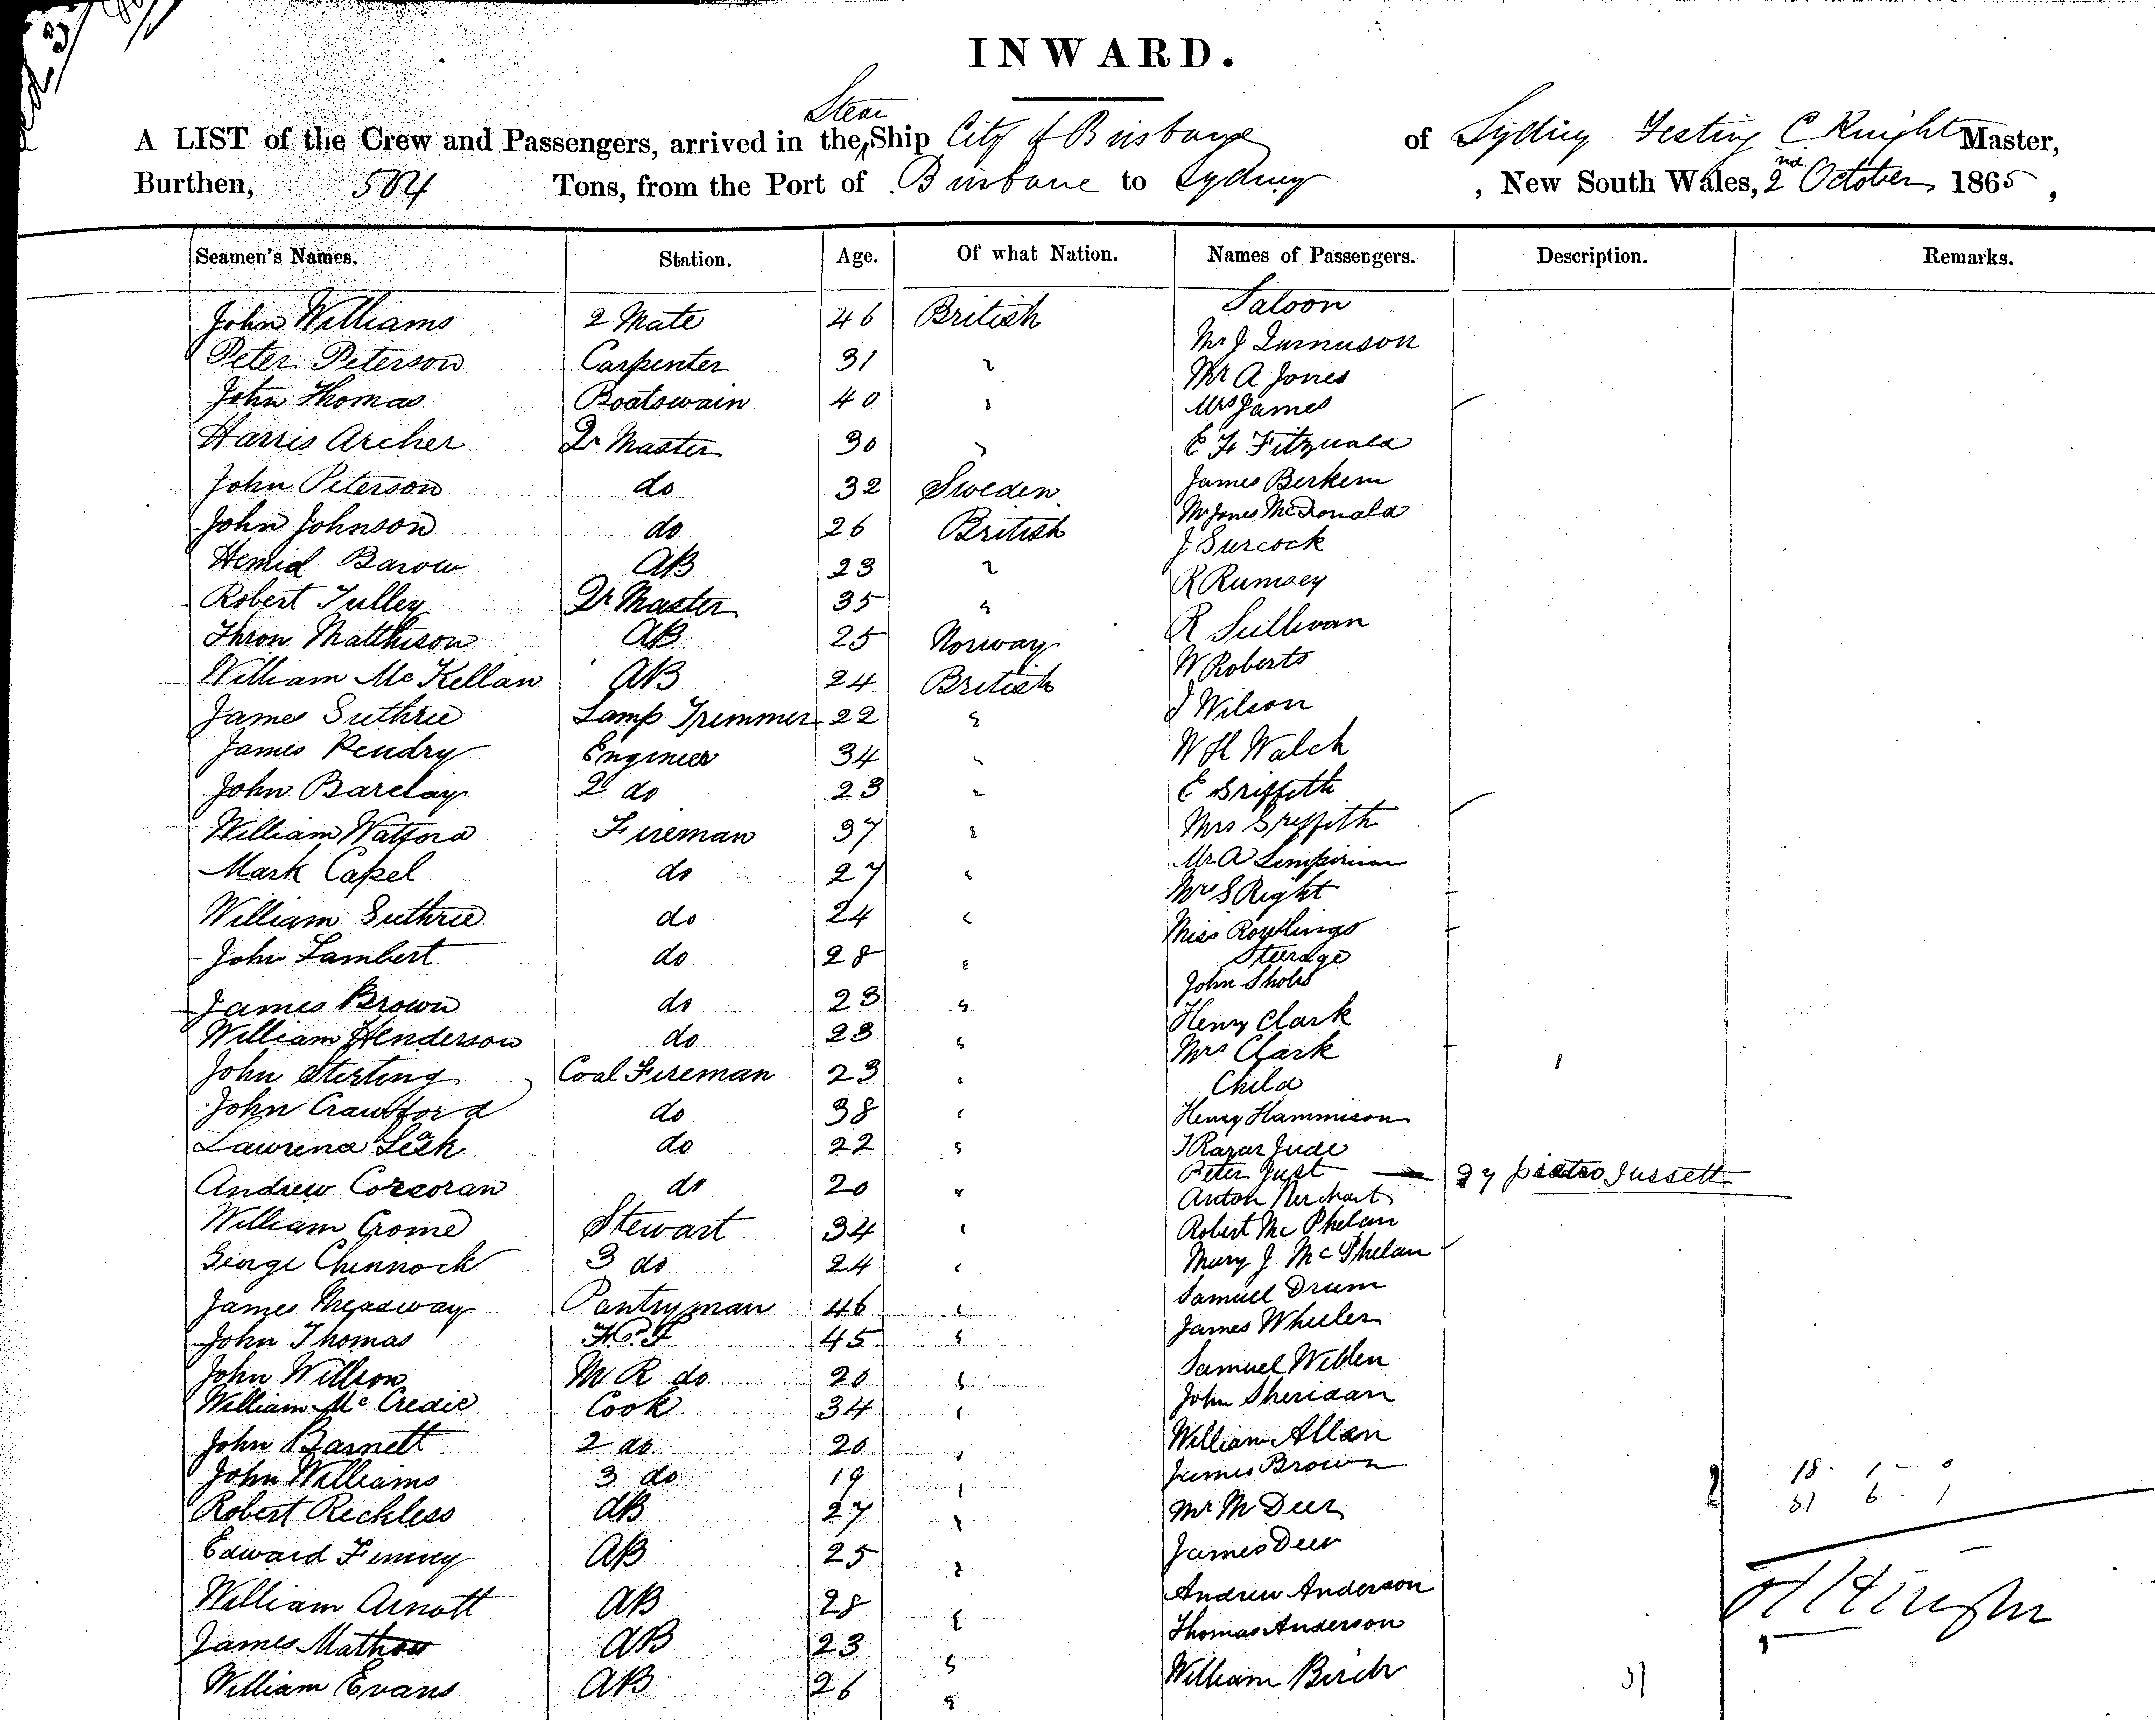 INWARD.
Steam
A LIST of the Crew and Passengers, arrived in the Ship City of Brisbane of Sydney Festing C Knight Master,
Burthen, 504 Tons, from the Port of Brisbane to Sydney, New South Wales, 2nd October 1865,
Seamen's Names. Station. Age. Of what Nation. Names of Passengers. Description. Remarks.
Saloon
John Williams 2 Mate 46 British Mr J
Peter Peterson Carpenter 31 " Mr A Jones
John Thomas Boatswain 40 " Mrs James
Harris Archer Qr Master 30 " E F
John Peterson do 32 Sweden James Berkem
John Johnson do 26 British McDonald
Barow AB 23 " J Surcock
Robert Tulley Qr Master 35 " R Rumsey
Thron Matthison AB 25 Norway R Sullivan
William McKellan AB 24 British W Roberts
James Guthrie Lamp Trimmer 22 " J Wilson
James Pendry Engineer 34 " W H Walch
John Barclay 2 do 23 " E Griffith
William Watford Fireman 37 " Mrs Griffith
Mark Capel do 27 " Mr A
William Guthrie do 24 " Mrs S Right
Miss Rowlings
John Lambert do 28 " Steerage
John
James Brown do 23 " Henry Clark
William Henderson do 23 " Mrs Clark
John Stirling Coal Fireman 23 " Child
John Crawford do 38 " Henry Hammison
Lawrence Leek do 22 "
Peter Just 27 Jussett
Andrew Corcoran do 20 " Anton
William Crome Stewart 34 " Robert McPhelan
George Chennock 3 do 24 " Mary J McPhelan
James Meadway Pantryman 46 " Samuel Drum
John Thomas 45 " James Wheeler
John Willson M R do 20 " Samuel Weblen
William McCredie Cook 34 " John Sheridan
John Barnett 2 do 20 " William Allen
John Williams 3 do 19 " James Brown 18 - 1 - 0
Robert Reckless AB 27 " Mr M Deer 31 6 - 1
Edward Finney AB 25 " James Deer
William Arnott AB 28 " Andrew Anderson
James Mathow AB 23 " Thomas Anderson
William Evans AB 26 " William Birch 31